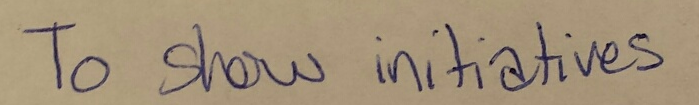 To show initiatives